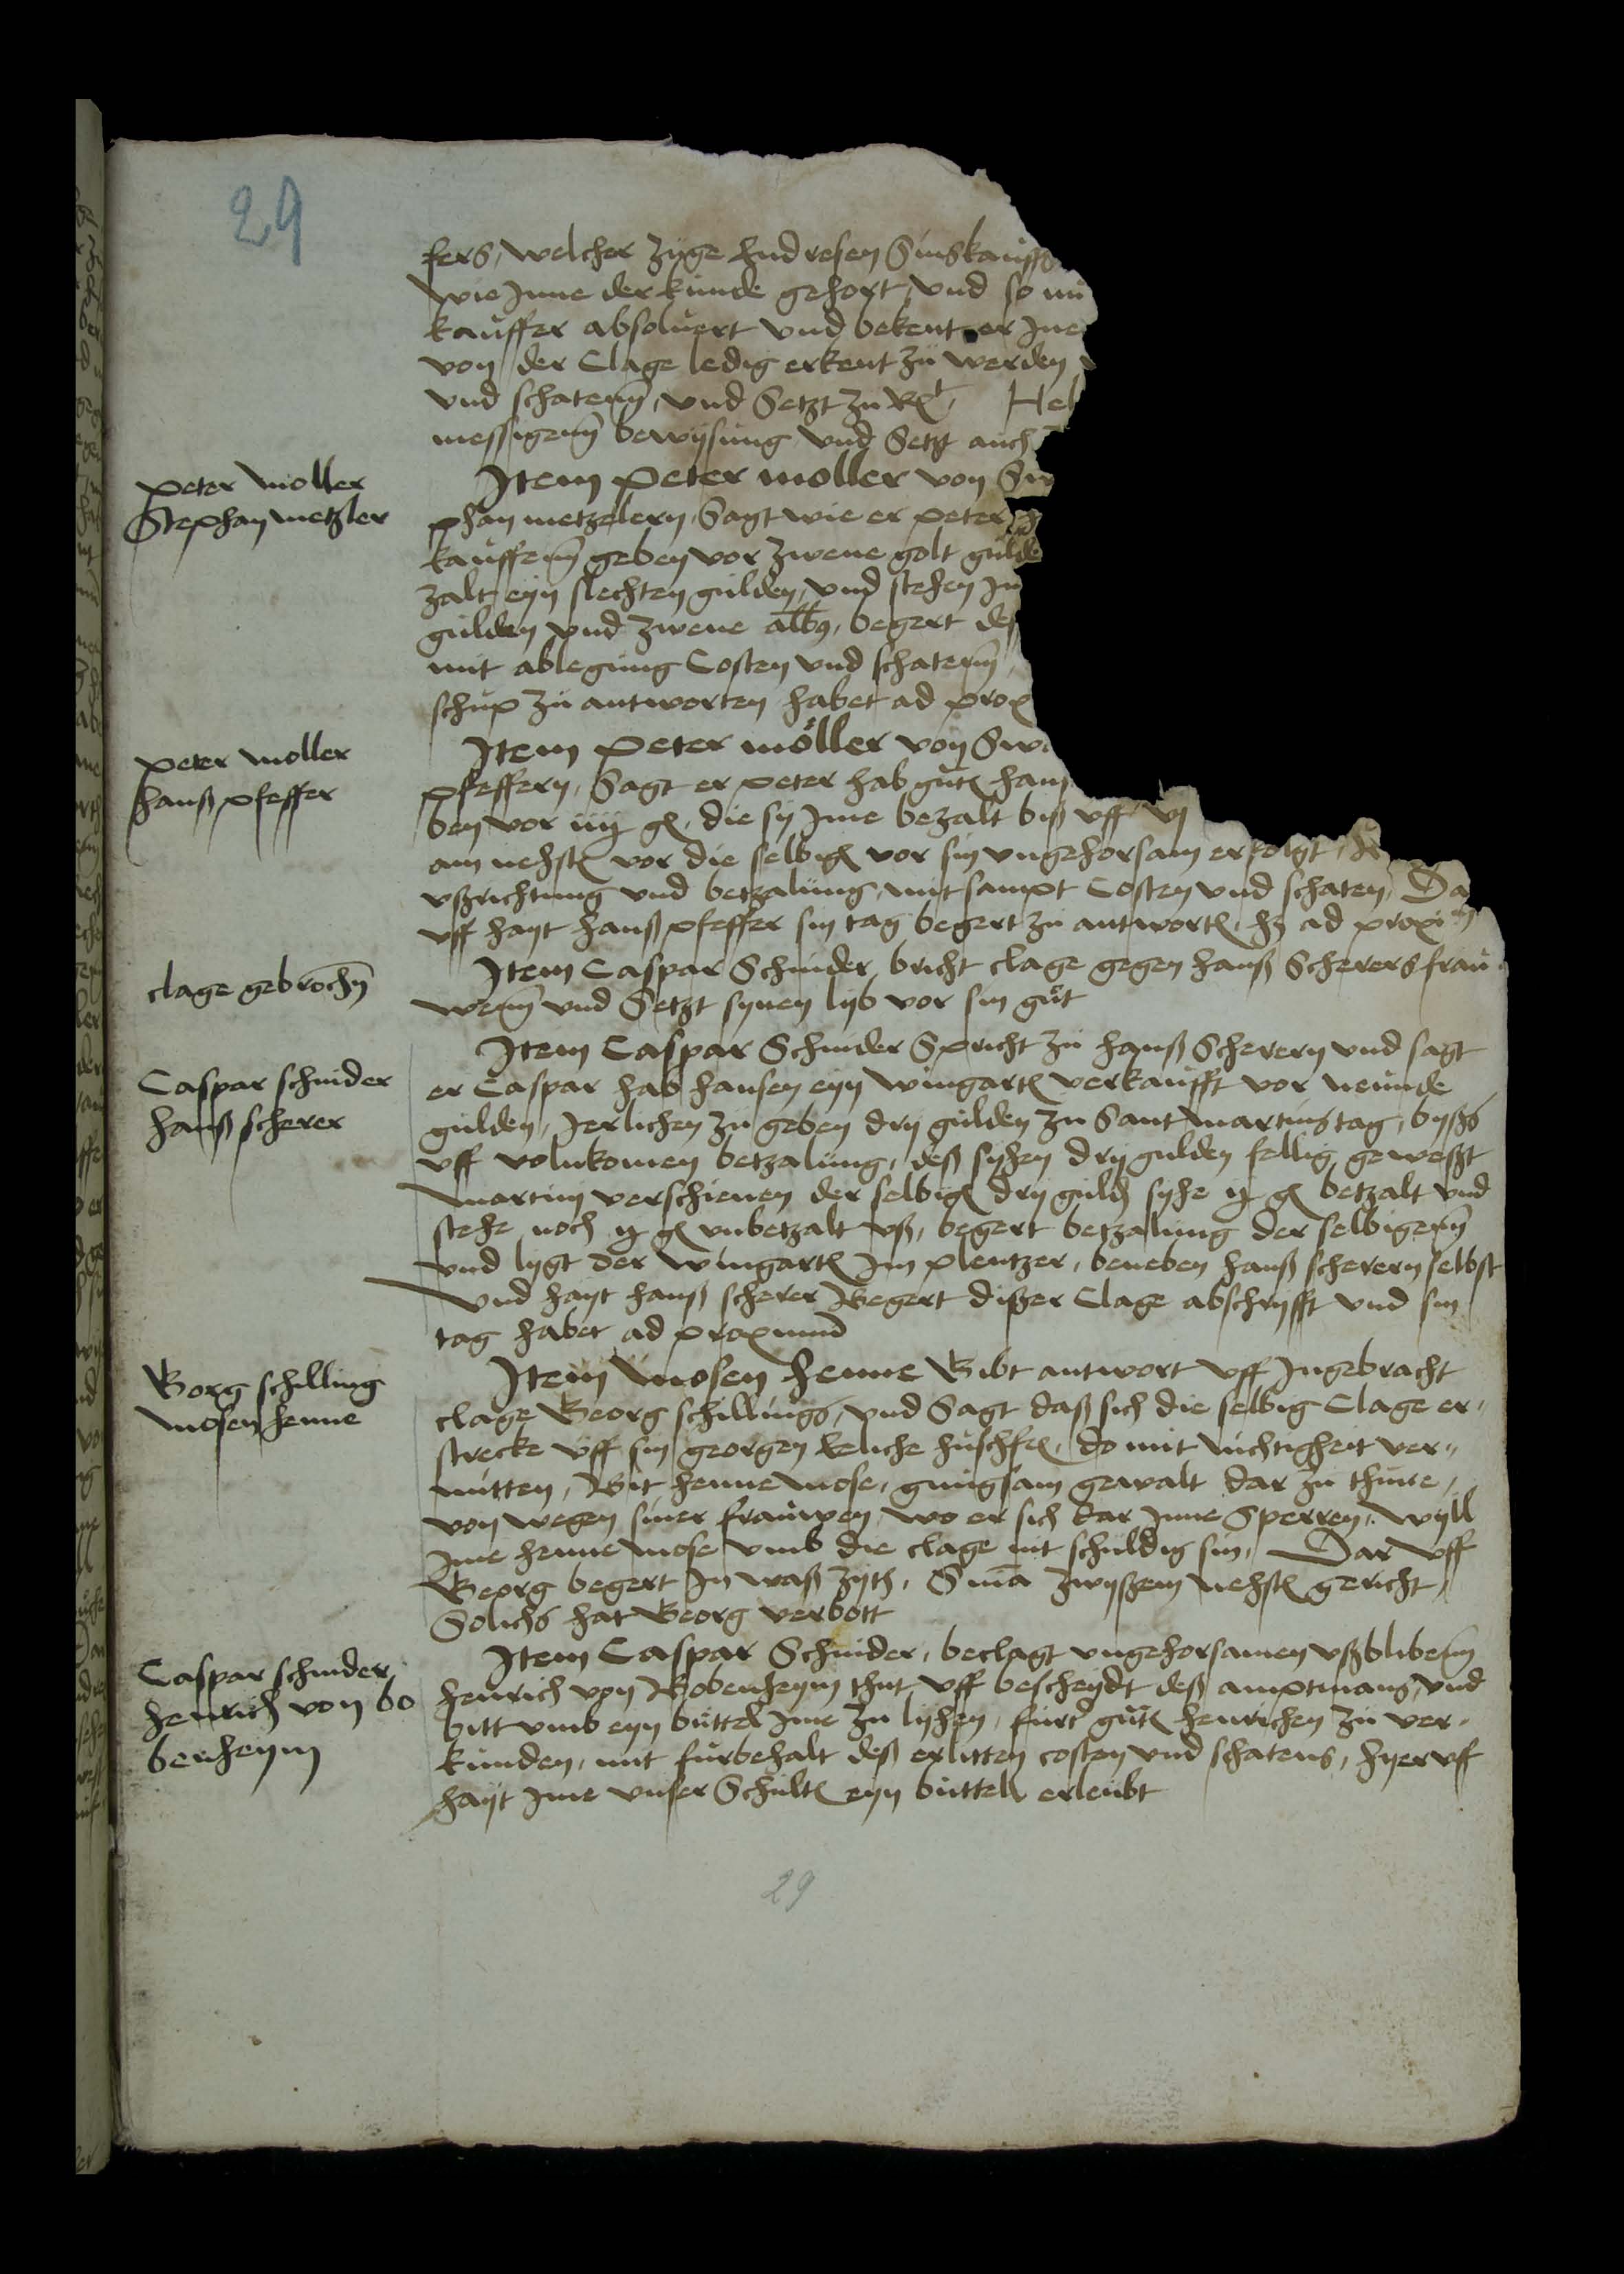 29
fers, welcher zuge Endresen Sinskauffs
wie Inne der kunde gehort, und so nu
kauffer absolvert und bekent er Ine
von der Clage ledig erkent zu werden
und schatenn, und Setzt zu Rt. Hel
messigenn bewysung und Setzt auch
peter moller
Stephan metzler
Item peter moller von Sw
phan metzelern, Sagt wie er peter
kauffenn geben vor zwene golt gulde
zalt eyn slechten gulden, und stehen In
gulden und zwene albg, begert des
mit ablegung Costen und schatenn,
schup zu antworten habet ad prox
peter moller
hanß pfeffer
Item peter moller von Swa
pfeffern, Sagt er peter hab gute hans
ben vor iiij gl, die sy Ime bezalt biß uff vj
am nehste vor die selbige vor sin ungehorsam erfolgt,
ußrichtung und betzalung mit sampt Costen und schaten, Da
uff hayt hanß pfeffer sin tag begert zu antworte, hz ad proxi
clage gebrochn
Item Caspar Schnider, bricht clage gegen hanß Scherers frau
wenn und Setzt synen lyb vor sin gut
Caspar schnider
hanß scherer
Item Caspar Schnider Spricht zu hanß Scherern und sagt
er Caspar hab hansen eyn wingarte verkaufft vor neunde
gulden, Jerlichen zu geben dry gulden zu Sant martins tag, byßs
uff volnkomen betzalung, deß syhen dry gulden fellig geweßt
martini verschienen der selbige dry guld syhe ij gl betzalt und
stehe noch ij gl unbetzalt uß, begert betzalung der selbigenn
und lygt der wingarte Im plentzer, beneben hanß scherern selbst
Und hayt hanß scherer Begert dißer Clage abschryfft und sin
tag habet ad proximum
Borg schilling
mosen henne
Item Mosen henne Gibt antwort uff Ingebracht
clage Georg schillings, und Sagt daß sich die selbig Clage er,,
strecke uff sin georgen eeliche hußfr, do mit nichtigheit ver,,
mitten, Bit henne mose, gnugsam gewalt dar zu thune,
von wegen siner frauwen, wo er sich dar Inne Sperren, wyll
Ime henne mose umb die clage nit schuldig sin, Dar uff
Georg begert In waß zyth, Sma zwyßem nehste gericht,
Solichs hat Georg verbott
Caspar schnider,
henrich von bo
benheym
Item Caspar Schnider, beclagt ungehorsamen ußblibenn
henrich von Bobenheym thut uff bescheydt deß amptmans, und
bitt umb eyn büttel Ime zu lyhen, furt gute henrichen zu ver,
kunden, mit furbehalt deß erlitten costen und schatens, hyer uf
hayt Ime unser Schulte eyn büttell erleubt
29